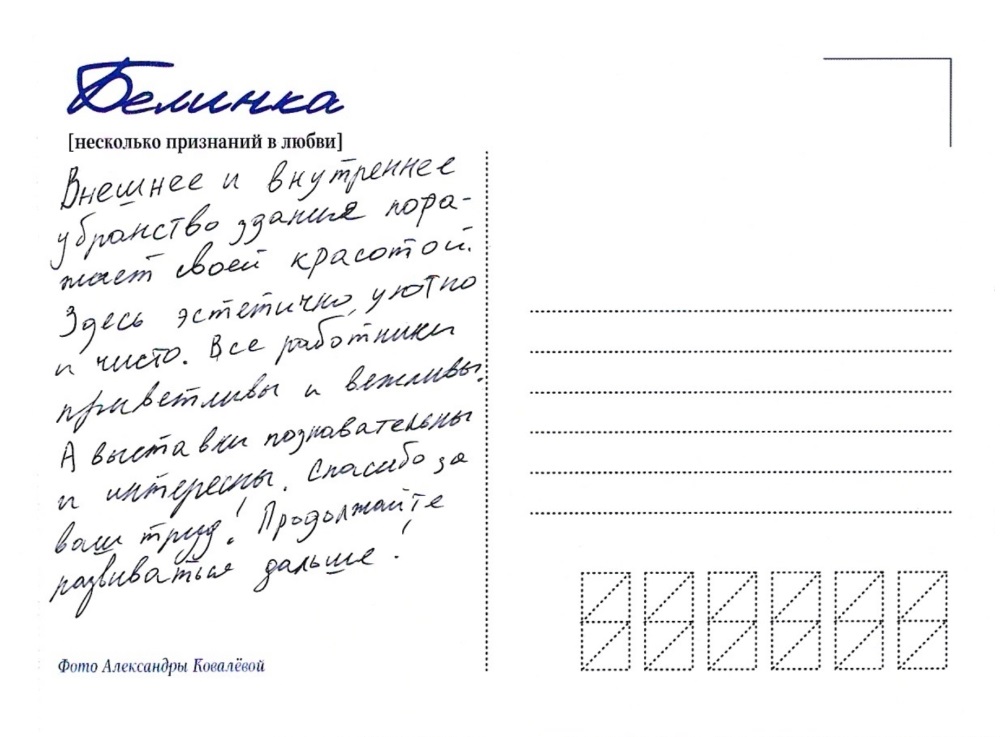 Белинка
[несколько признаний в любви]
Внешнее и внутреннее
убранство здания пора-
жает своей красотой.
Здесь эстетично, уютно
и чисто. Все работники
приветливы и вежливы.
А выставки познавательны
и интересны. Спасибо за
ваш труд! Продолжайте
развиваться дальше!
Фото Александры Ковалёвой